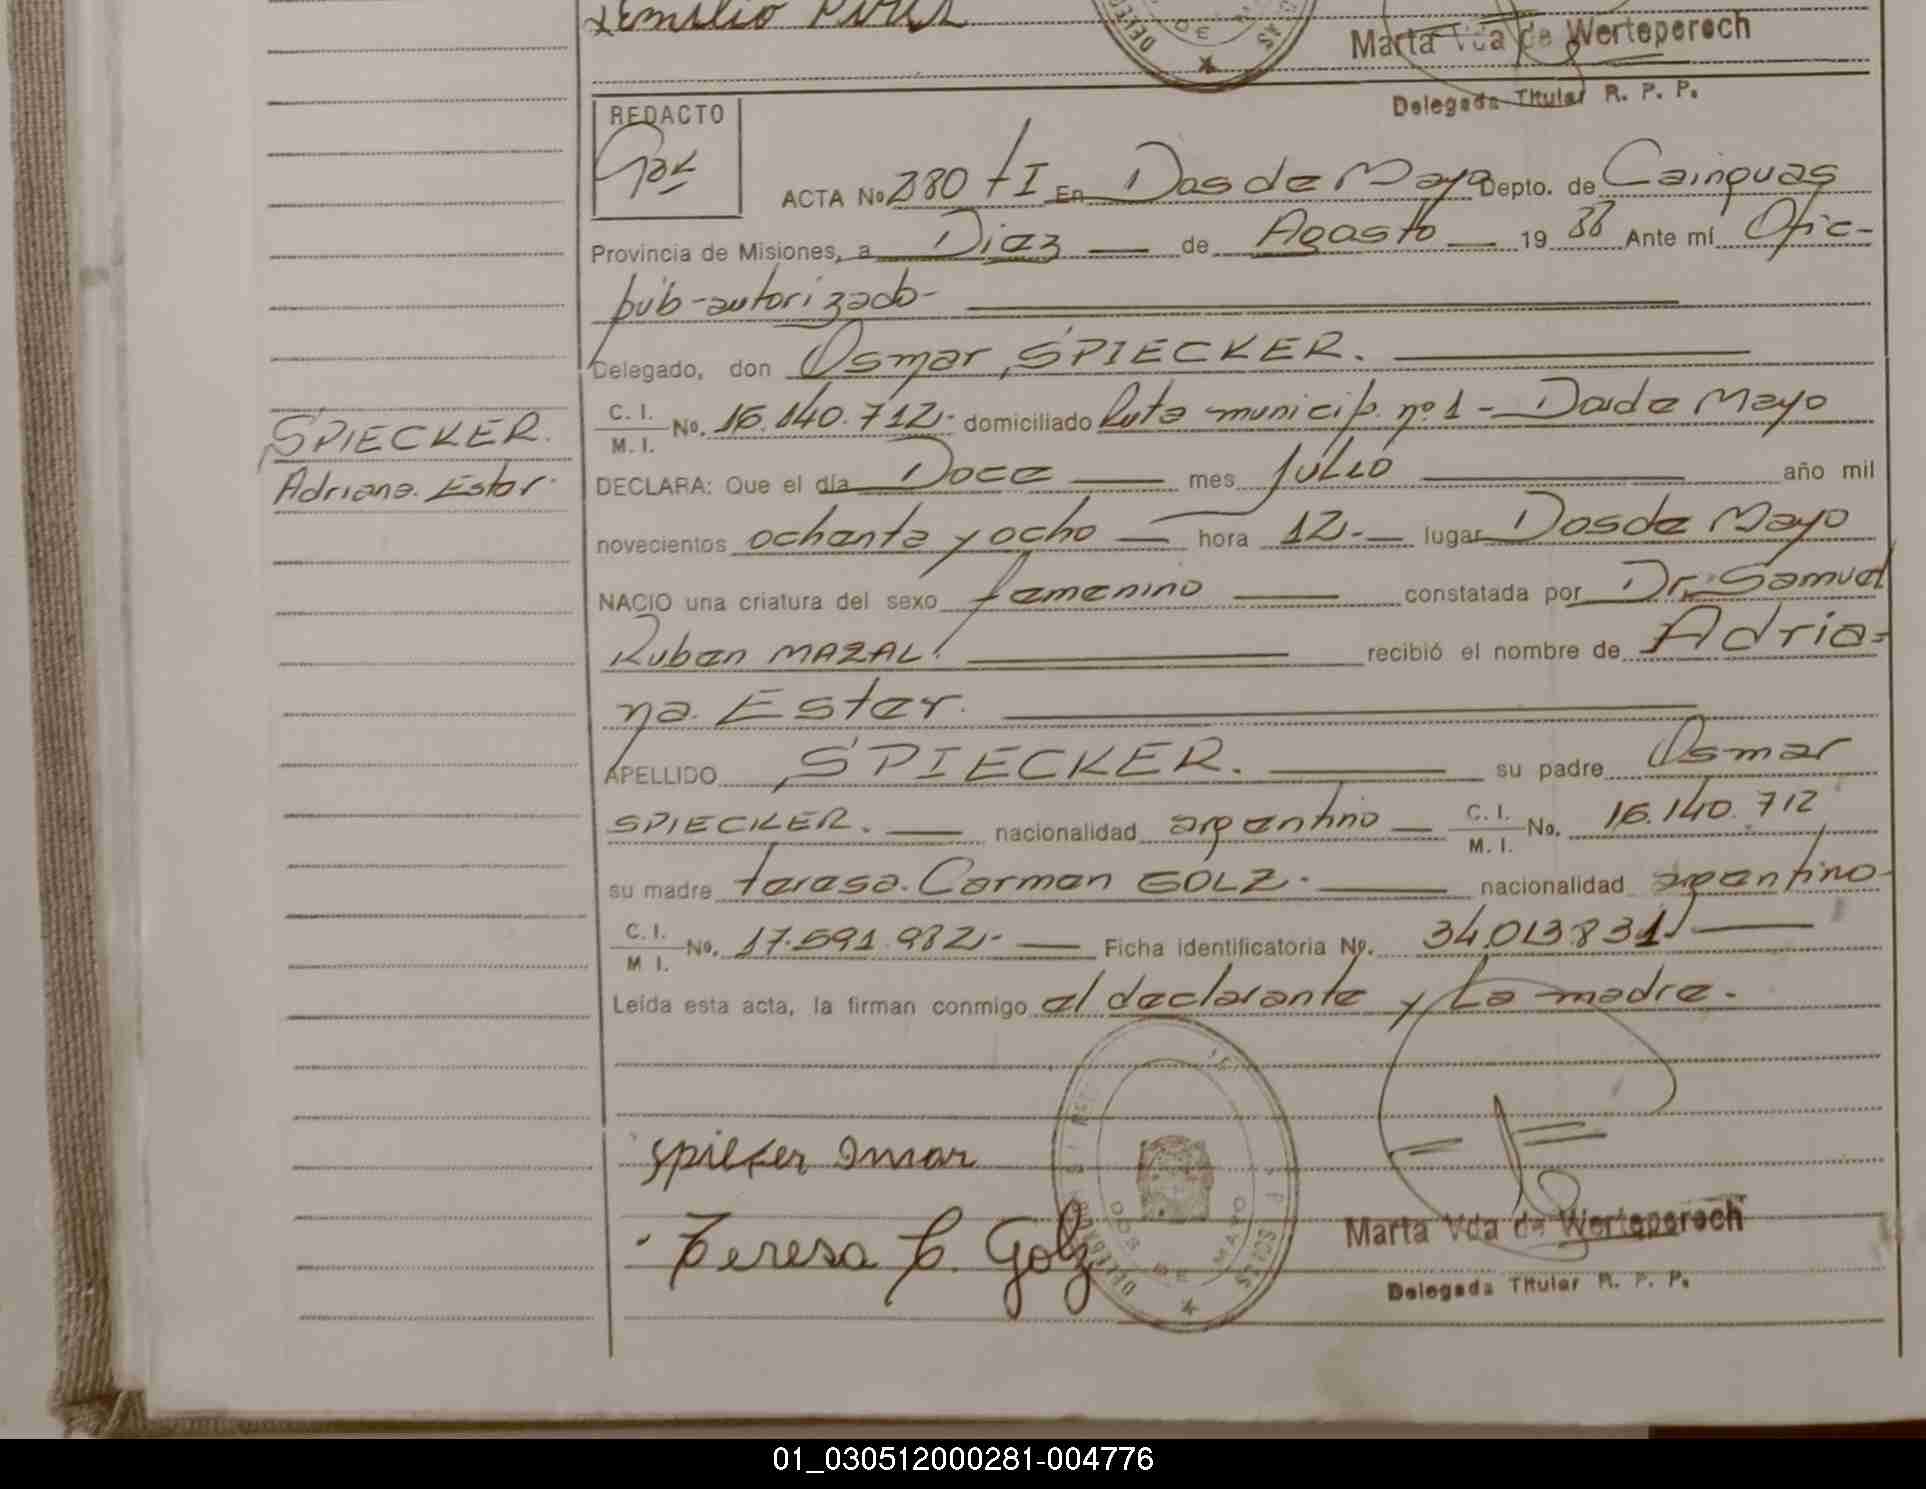 Emilio
DE
Marta Vda de Werteperoch
Delegada Titular R. P. P.
REDACTO
ACTA No 280 t I En Dos de Mayo Depto. de Cainguas
Provincia de Misiones, a Diez de Agosto 19 88 Ante mí Ofic-
púb-autorizado-
Delegado, don Osmar, SPIECKER.
C. I.
M. I. No. 16.140.712.- domiciliado Ruta municip. nº 1 - Dos de Mayo
SPIECKER.
Adriana. Ester.
DECLARA: Que el día Doce mes Julio año mil
novecientos ochenta y ocho hora 12.- lugar Dos de Mayo
NACIO una criatura del sexo femenino constatada por Dr. Samuel
Ruben MAZAL. recibió el nombre de Adria=
na. Ester.
APELLIDO SPIECKER. su padre Osmar
SPIECKER. nacionalidad argentino C. I.
M. I. No. 16.140.712
su madre teresa. Carmen GOLZ. nacionalidad argentino-
C. I.
M I. No. 17.591.982.- Ficha identificatoria Nº. 34.013.831
Leída esta acta, la firman conmigo el declarante y La madre.
Spieker Osmar
Teresa C. Golz
DOS DE MAYO
Marta Vda de Werteperoch
Delegada Titular R. P. P.
01_030512000281-004776